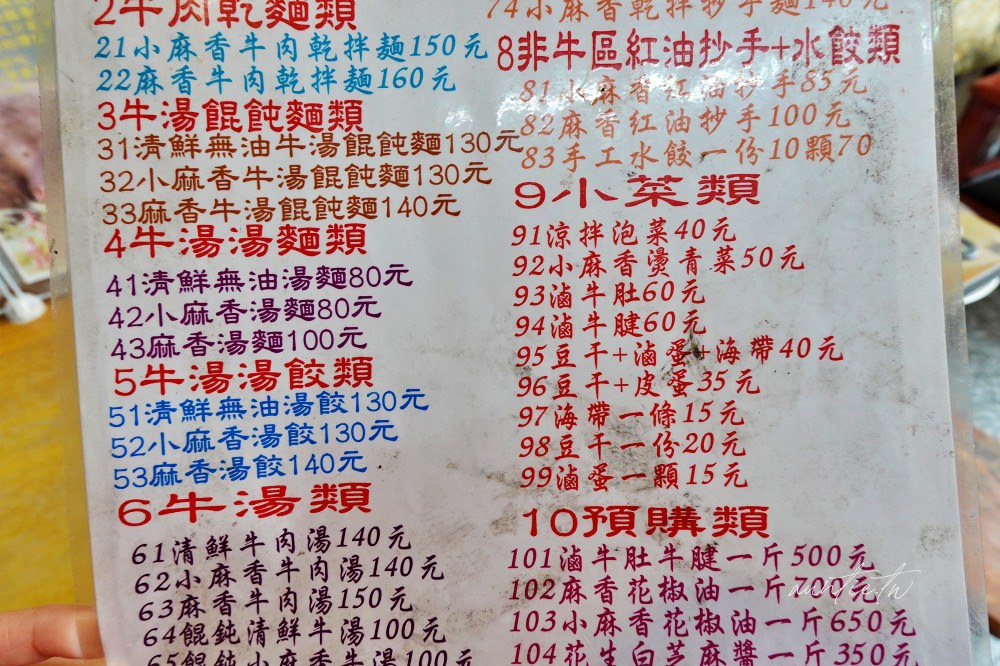 2牛肉乾麵類
21小麻香牛肉乾拌麵150元
22麻香牛肉乾拌麵160元
3牛湯餛飩麵類
31清鮮無油牛湯餛飩麵130元
32小麻香牛湯餛飩麵130元
33麻香牛湯餛飩麵140元
4牛湯湯麵類
41清鮮無油湯麵80元
42小麻香湯麵80元
43麻香湯麵100元
5牛湯湯餃類
51清鮮無油湯餃130元
52小麻香湯餃130元
53麻香湯餃140元
6牛湯類
61清鮮牛肉湯140元
62小麻香牛肉湯140元
63麻香牛肉湯150元
64餛飩清鮮牛湯100元
65餛飩小麻香牛湯100元
74小麻香乾拌抄手麵140元
8非牛區紅油抄手+水餃類
81小麻香紅油抄手85元
82麻香紅油抄手100元
83手工水餃一份10顆70
9小菜類
91涼拌泡菜40元
92小麻香燙青菜50元
93滷牛肚60元
94滷牛腱60元
95豆干+滷蛋+海帶40元
96豆干+皮蛋35元
97海帶一條15元
98豆干一份20元
99滷蛋一顆15元
10預購類
101滷牛肚牛腱一斤500元
102麻香花椒油一斤700元
103小麻香花椒油一斤650元
104花生白芝麻醬一斤350元